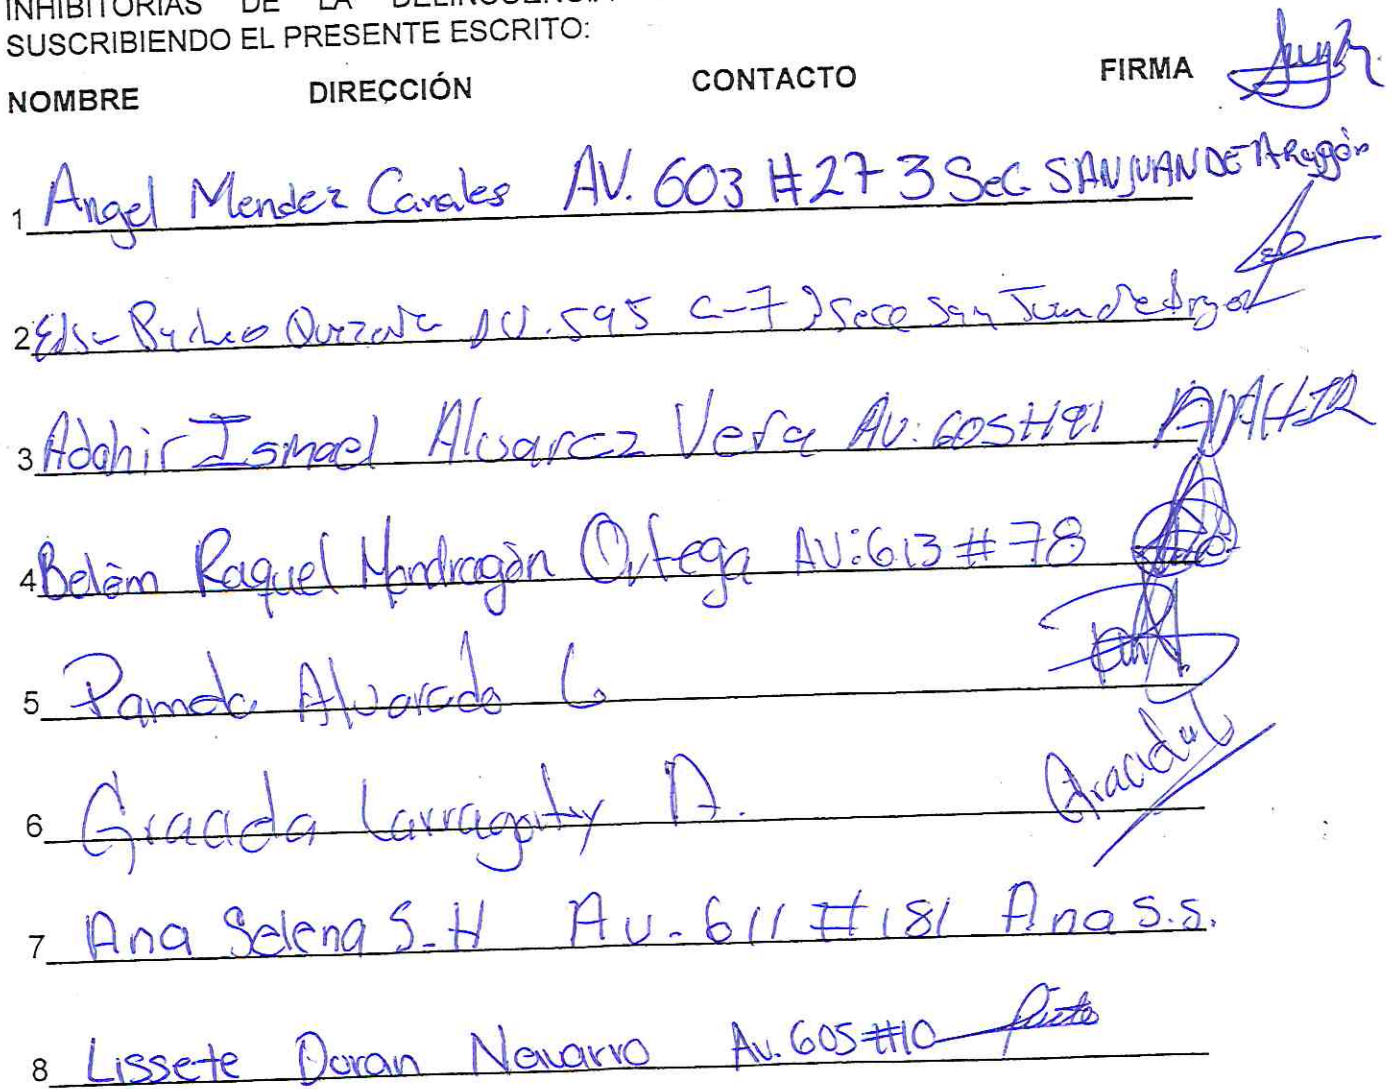 INHIBITORIAS DE LA DELINCUENCIA
SUSCRIBIENDO EL PRESENTE ESCRITO:
NOMBRE DIRECCIÓN CONTACTO FIRMA
1 Angel Mendez Canales AV. 603 #27 3 Sec SAN JUAN DE Aragón
2 Elsa Pacheco AV. 595 C-7 3 Secc San Juan de Aragon
3 Adahir Ismael Alvarez Vera AV. 605 #91 ADAHIR
4 Belém Raquel Mondragón Ortega AV: 613 #78
5 Pamela Alvarado L
6 Graciela Larragoity A. Graciela L
7 Ana Selena S-H Av. 611 #181 Ana S.S.
8 Lissete Doran Navarro Av. 605 #10